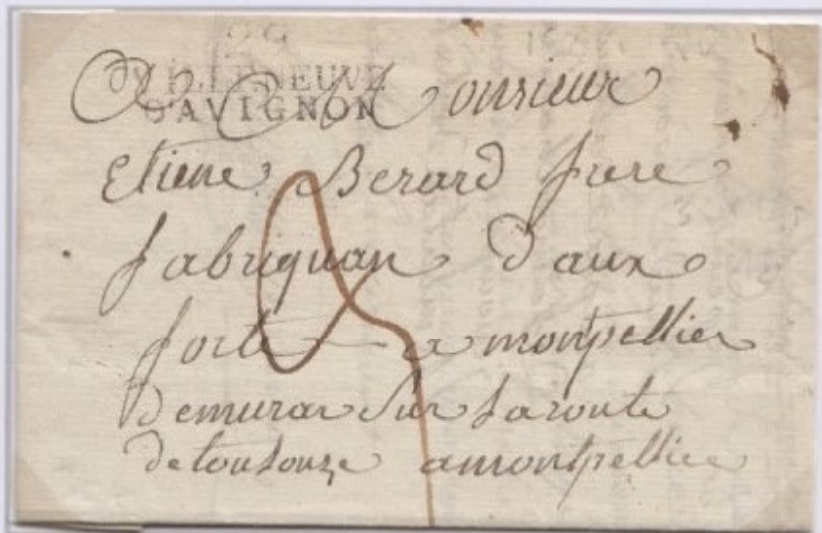 29
VILLENEUVE
D'AVIGNON
A Monsieur
Etiene Berard frere
fabriquan d'aux
forte a monpellier
demuran Sur La route
de toulouze a montpellier